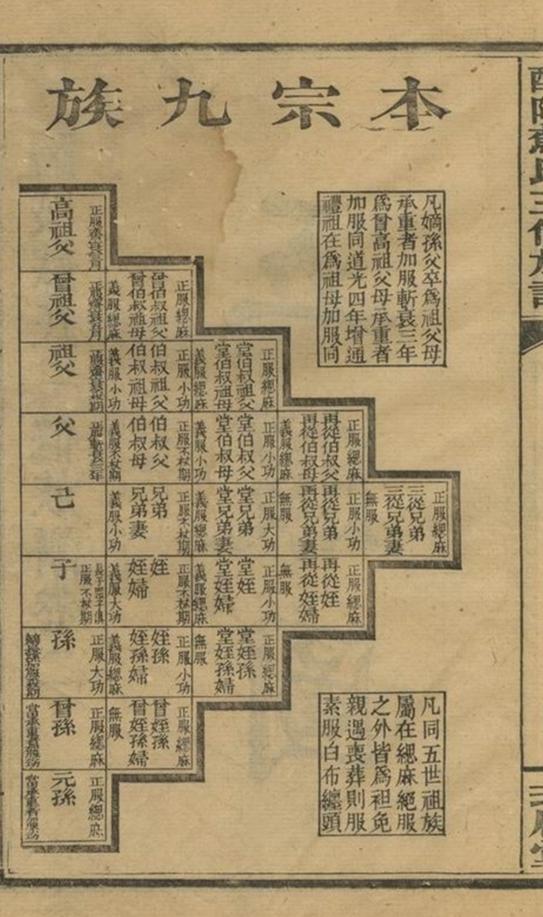 本宗九族
凡嫡孫父卒為祖父母
承重者加服斬衰三年
為曾高祖父母承重者
加服同道光四年增通
禮祖在為祖母加服同
高祖父
曾祖父
正服緦麻
曾伯叔祖父
曾伯叔祖母
義服緦麻
正服緦麻
堂伯叔祖父
堂伯叔祖母
義服緦麻
正服小功
伯叔祖父
伯叔祖母
義服小功
祖父
正服緦麻
再從伯叔父
再從伯叔母
義服緦麻
正服小功
堂伯叔父
堂伯叔母
義服小功
正服不杖期
伯叔父
伯叔母
義服不杖期
父
正服緦麻
三從兄弟
三從兄弟妻
無服
正服小功
再從兄弟
再從兄弟妻
無服
正服大功
堂兄弟
堂兄弟妻
義服緦麻
正服不杖期
兄弟
兄弟妻
義服小功
己
正服緦麻
再從姪
再從姪婦
無服
正服小功
堂姪
堂姪婦
義服緦麻
正服不杖期
姪
姪婦
義服大功
正服不杖期
子
正服緦麻
堂姪孫
堂姪孫婦
無服
正服小功
姪孫
姪孫婦
義服緦麻
正服大功
孫
正服緦麻
曾姪孫
曾姪孫婦
無服
正服緦麻
曾孫
正服緦麻
元孫
凡同五世祖族
屬在緦麻絕服
之外皆為袒免
親遇喪葬則服
素服白布纏頭